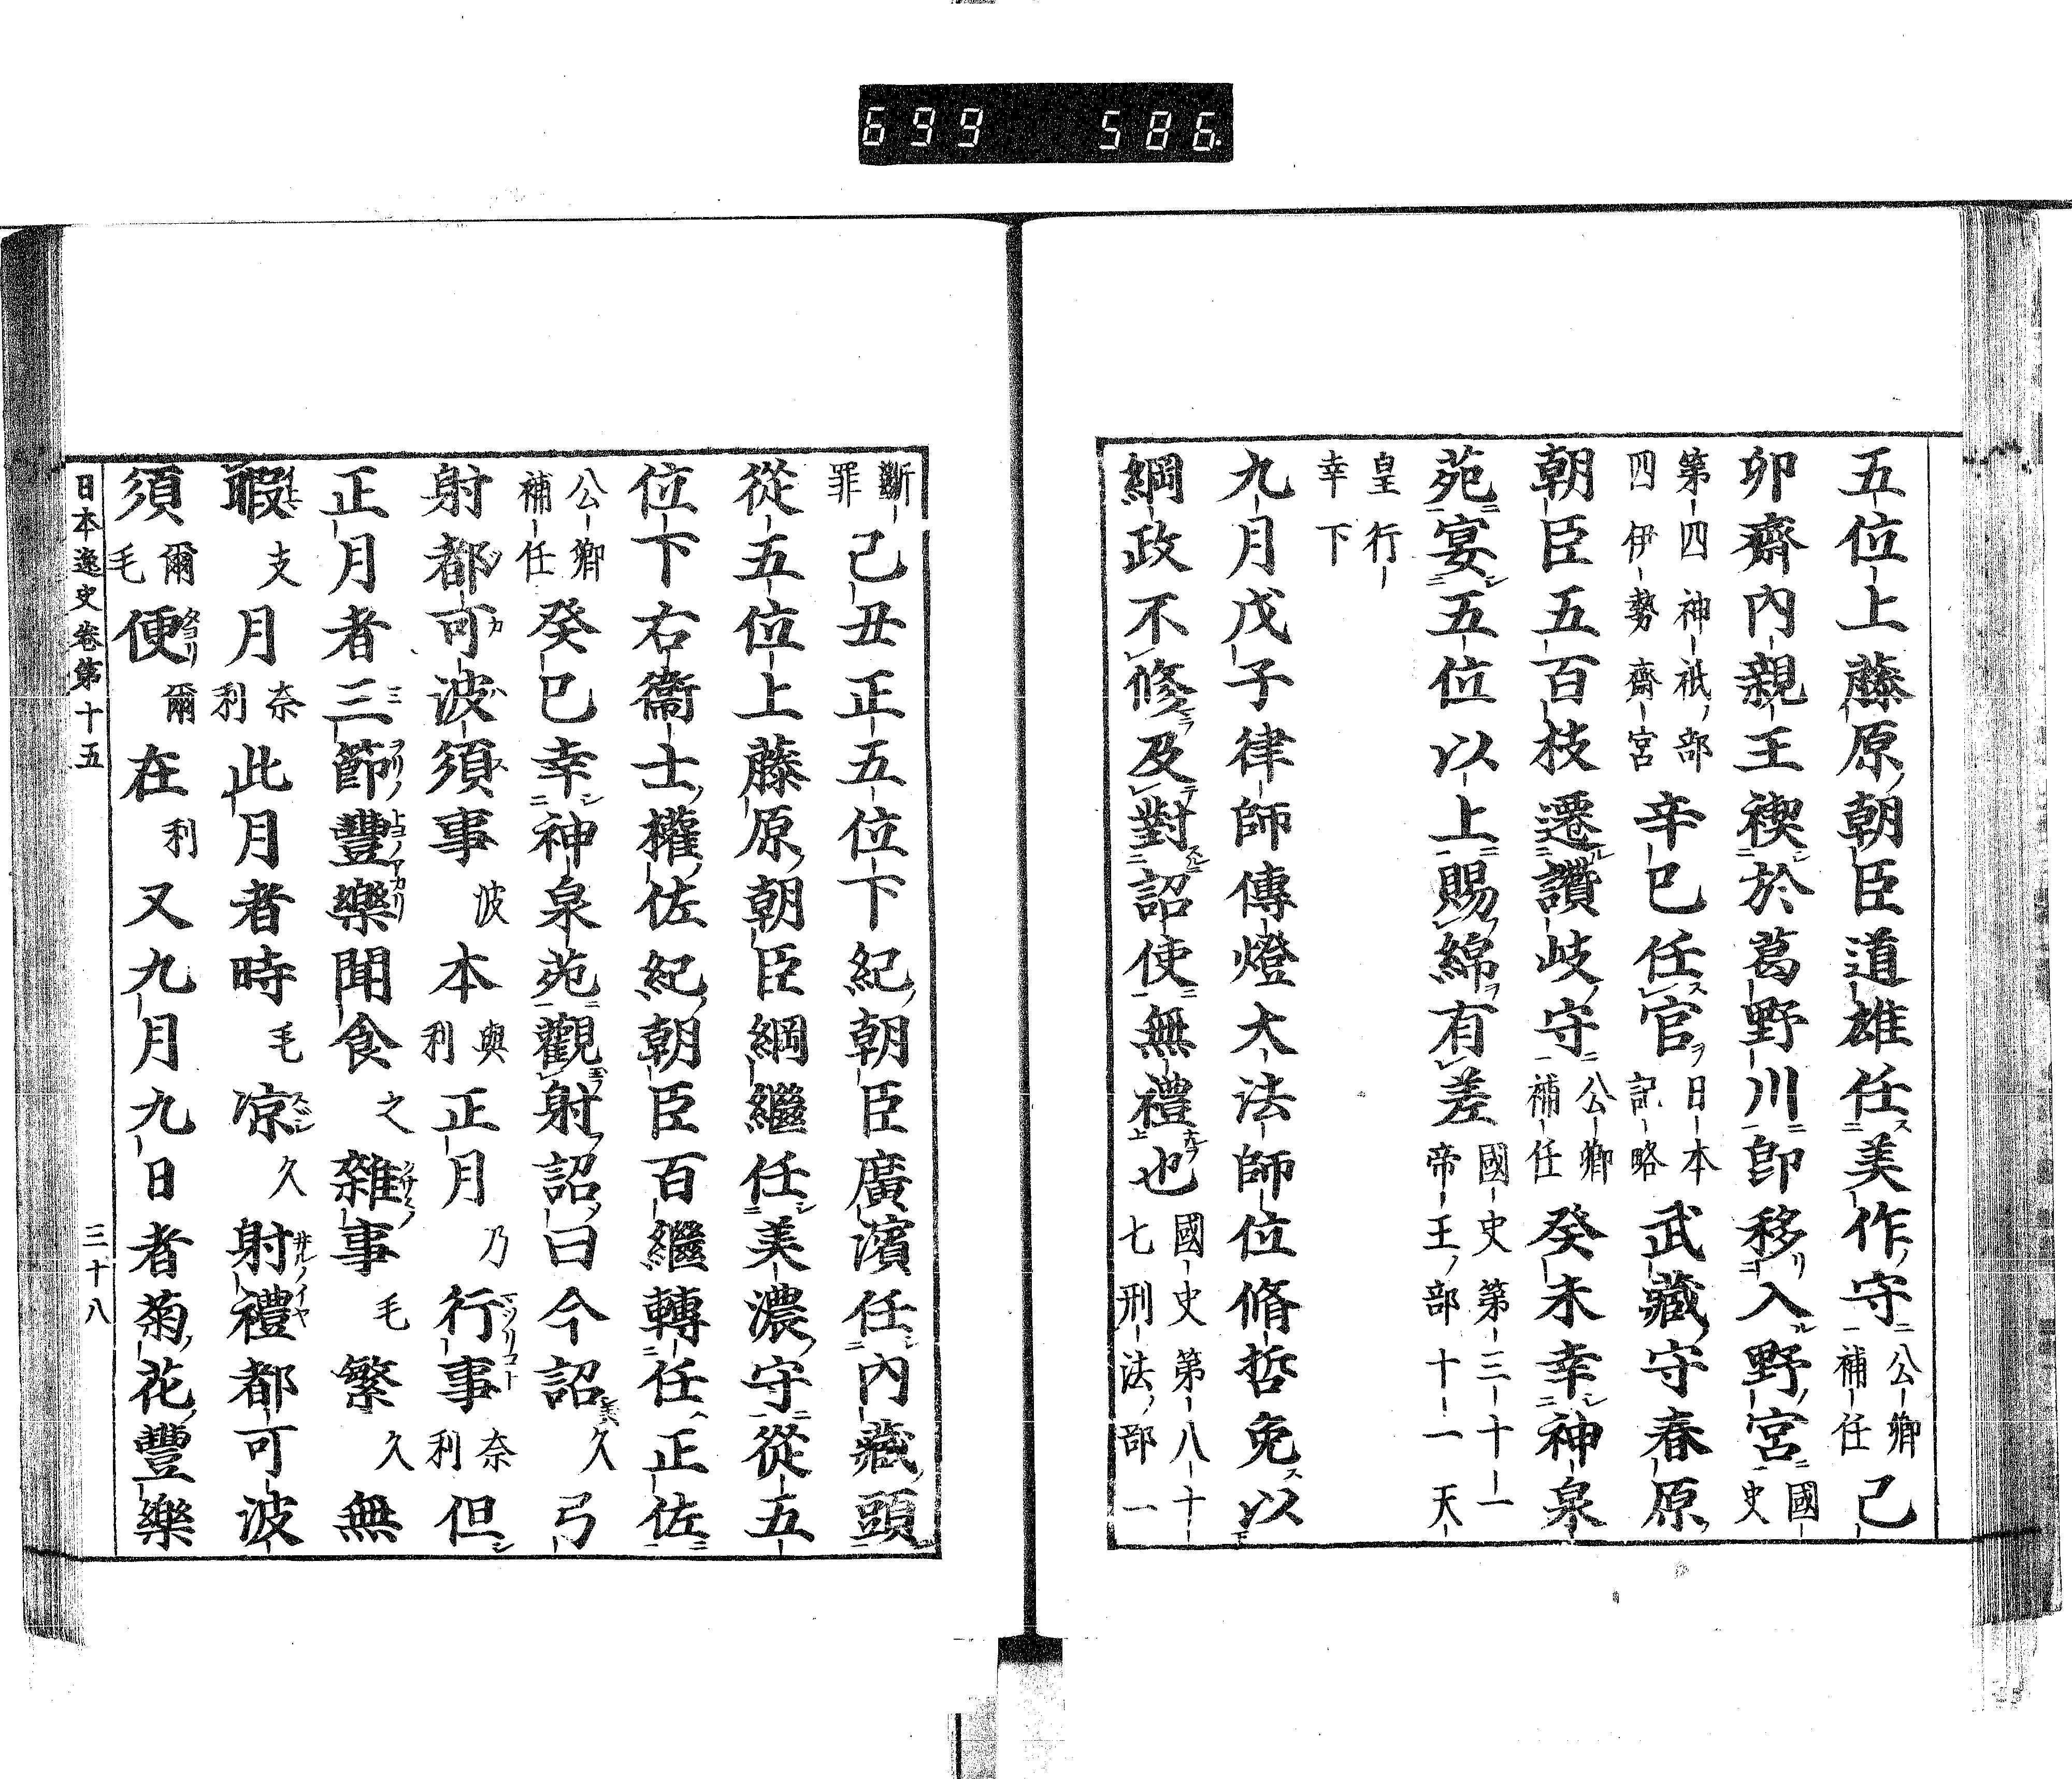 699 586.
五位上藤原朝臣道雄任美作守公卿補任己
卯齋內親王禊於葛野川即移入野宮國史
第四神祇部四伊勢齋宮辛巳任官日本記略武藏守春原
朝臣五百枝遷讚岐守公卿補任癸未幸神泉
苑宴五位以上賜綿有差國史第三十一帝王部十一天
皇行幸下
九月戊子律師傳燈大法師位脩哲免以
綱政不修及對詔使無禮也國史第八十七刑法部一
斷罪己丑正五位下紀朝臣廣濱任內藏頭
從五位上藤原朝臣綱繼任美濃守從五
位下右衞士權佐紀朝臣百繼轉任正佐
公卿補任癸巳幸神泉苑觀射詔曰今詔久弓
射都可波須事波本與利正月乃行事奈利但
正月者三節豐樂聞食之雜事毛繁久無
暇支月奈利此月者時毛凉久射禮都可波
須爾毛便爾在利又九月九日者菊花豐樂
日本逸史卷第十五 三十八